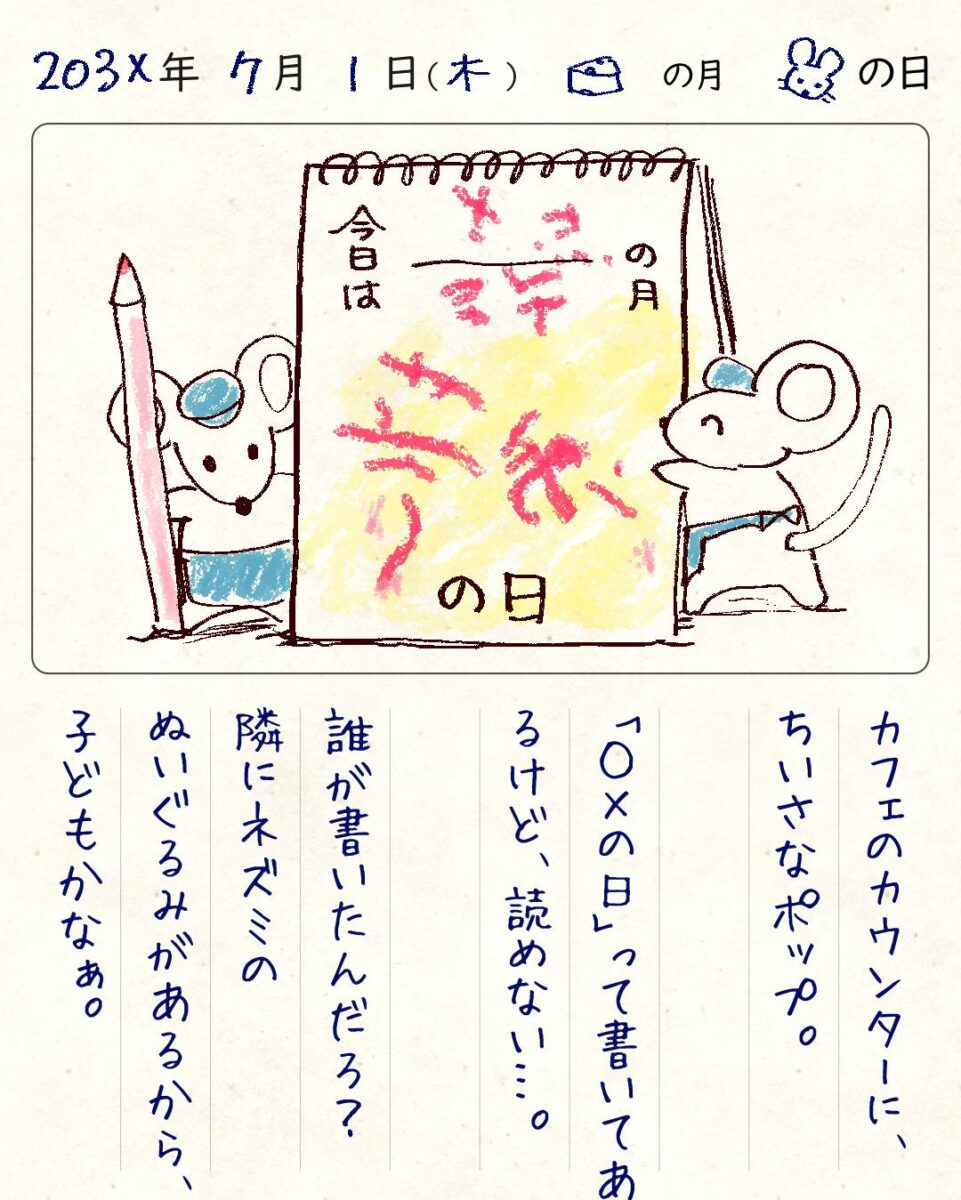 203X年 7月 1日(木) の月 の日
今日は
の月
の日
カフェのカウンターに、
ちいさなポップ。
「〇×の日」って書いてあ
るけど、読めない…。
誰が書いたんだろ?
隣にネズミの
ぬいぐるみがあるから、
子どもかなぁ。